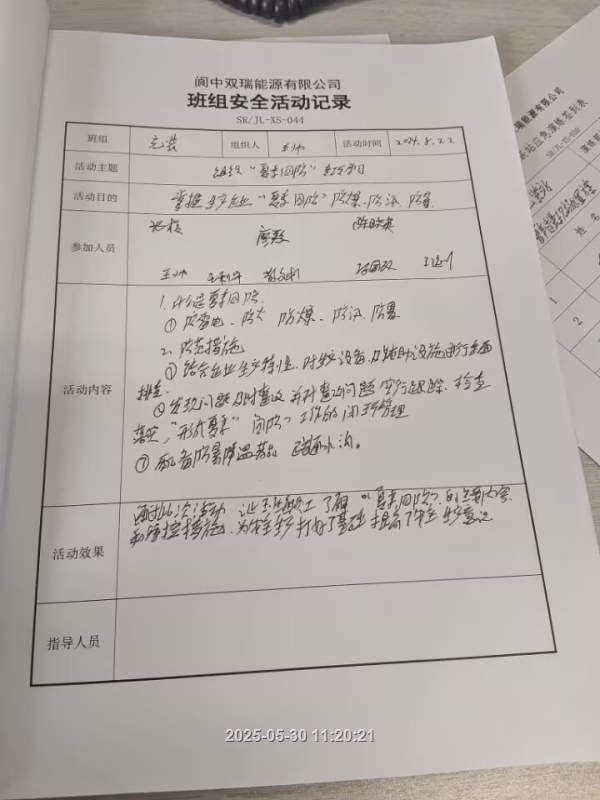 阆中双瑞能源有限公司
班组安全活动记录
SR/JL-XS-044
班组 充装 组织人 王帅 活动时间 2024.5.22
活动主题 组织"夏季四防"知识学习
活动目的 掌握生产企业"夏季四防"防爆、防汛、防暑
参加人员
王帅
活动内容
1.什么是夏季四防
①防雷电、防火 防爆、防汛、防暑
2.防范措施
①结合企业生产特性,对生产设备、及辅助设施进行全面
排查
②发现问题及时整改 并对整改问题实行跟踪、检查
落实,形成夏季"四防"工作的闭环管理
③配备防暑降温药品 疏通水沟。
活动效果
通过此次活动 让全体职工了解"夏季四防"的主要内容
和管控措施,为安全生产打好了基础 提高了安全生产意识
指导人员
瑞能源有限公司
SR/JL-XS-020
姓名
1
2
2025-05-30 11:20:21